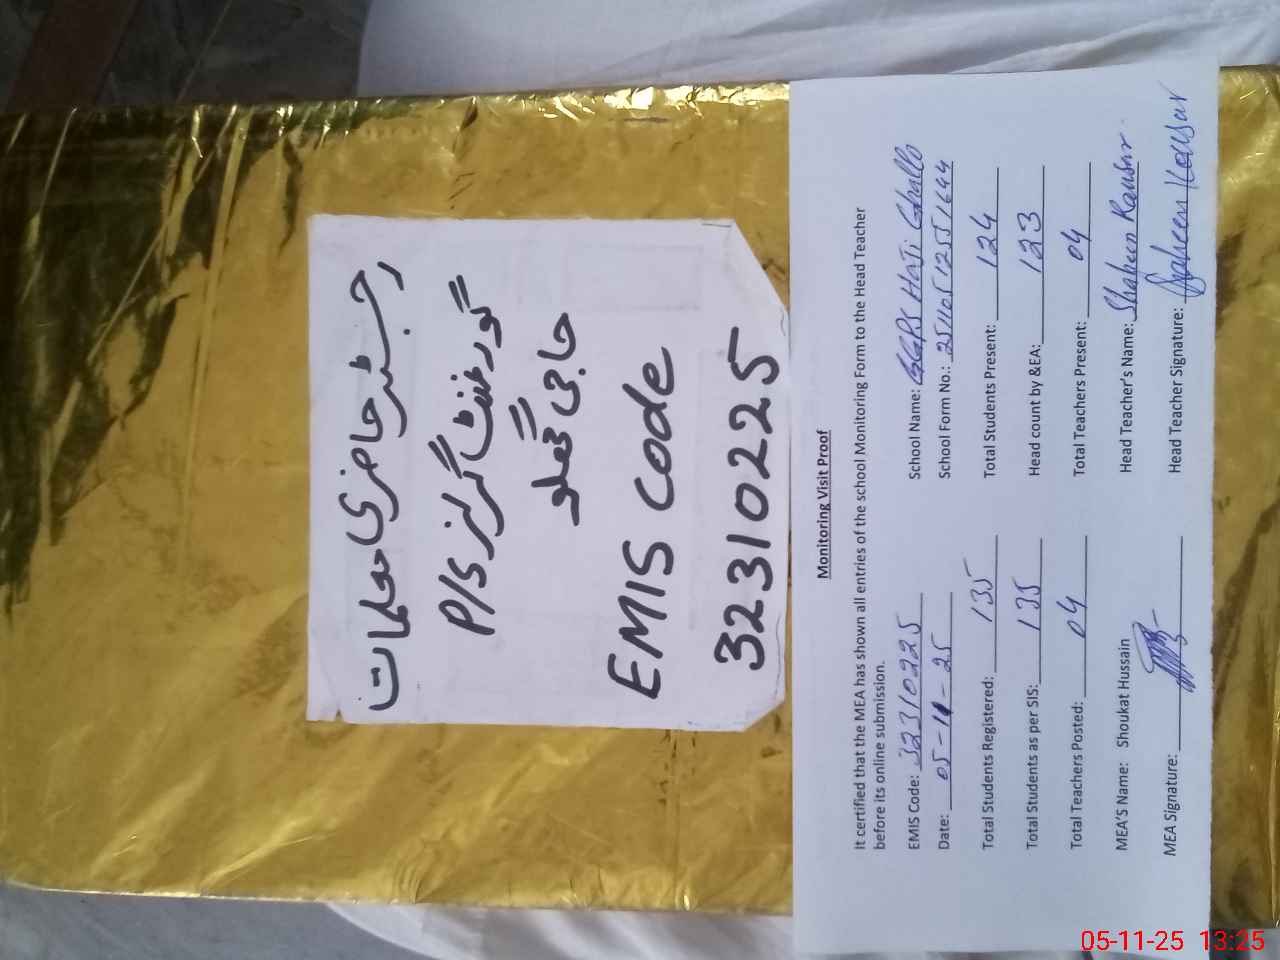 رجسٹر حاضری معلمات
گورنمنٹ گرلز P/S
حاجی گھلو
EMIS Code
32310225
Monitoring Visit Proof
It certified that the MEA has shown all entries of the school Monitoring Form to the Head Teacher
before its online submission.
EMIS Code: 32310225 School Name: GGPS Haji Ghallo
Date: 05-11-25 School Form No.: 25110512551644
Total Students Registered: 135 Total Students Present: 124
Total Students as per SIS: 135 Head count by &EA: 123
Total Teachers Posted: 04 Total Teachers Present: 04
MEA'S Name: Shoukat Hussain Head Teacher's Name: Shaheen Kausar
MEA Signature: Head Teacher Signature: Shaheen Kausar
05-11-25 13:25